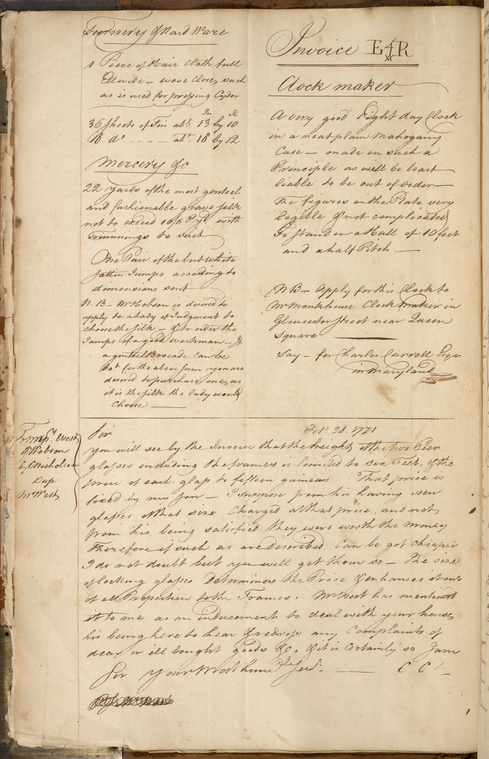 Turnery & Hard Ware
1 Piece of Hair Cloth full
Ell wide – wove close, such
as is used for pressing Cyder
In In
36 Sheets of Tin abt. 13 by 10
18 do . . . . – at. 18 by 12
Mercery &c
22 yards of the most genteel
and fashionable grave silk
not to exceed 10/6 Pr yd. with
Trimmings to suit
One Pair of the best white
Sattin Jumps according to
dimensions sent
N.B – Mr Hobson is desired to
apply to a lady of Judgment to
choose the silk – & to order the
Jumps of a good workman – If
a genteel Brocade can be
got for the above sum you are
desired to purchase one, as
it is the silk the lady would
Choose
Invoice E R
Clock maker
A very good Eight day Clock
in a neat plain Mahogany
Case – made on such a
Principle as will be least
liable to be out of order –
The figures on the Plate very
legible & not complicated
To stand in a Hall of 10 feet
and a half Pitch –
NB – Apply for this Clock to
Mr Monkhouse Clock maker in
Gloucester Street near Queen
Square
Say – for Charles Carroll Esqr
in Maryland
West
& Hobson
Nicholson
West
Octr. 28. 1771
Sir
You will see by the Invoice that the height of the two Pier
glasses including the frames is limited to six Feet, & the
price of each glass to fifteen guineas That price is
fixed by my son – I suppose from his having seen
glasses of that size Charged at that price, and not
from his being satisfied they were worth the money
Therefore if such as are described can be got cheaper
I do not doubt but you will get them so – The size
of looking glasses Determines the Price & enhances it out
of all Proportion to the Frames. Mr West has mentioned
it to me as an inducement to deal with your house,
his being here to hear & redress any Complaints of
dear or ill bought goods &c, & it is certainly so I am
Sir Your Most hum: Servt. C C